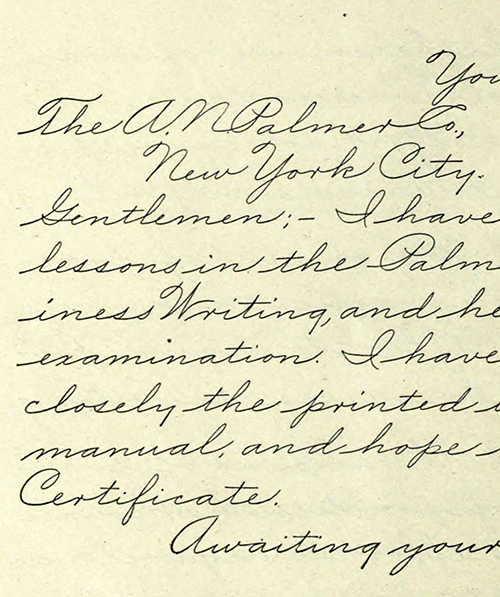 You
The A. N. Palmer Co.,
New York City.
Gentlemen;- I have
lessons in the Palm
iness Writing, and he
examination. I have
closely the printed i
manual, and hope
Certificate.
Awaiting your